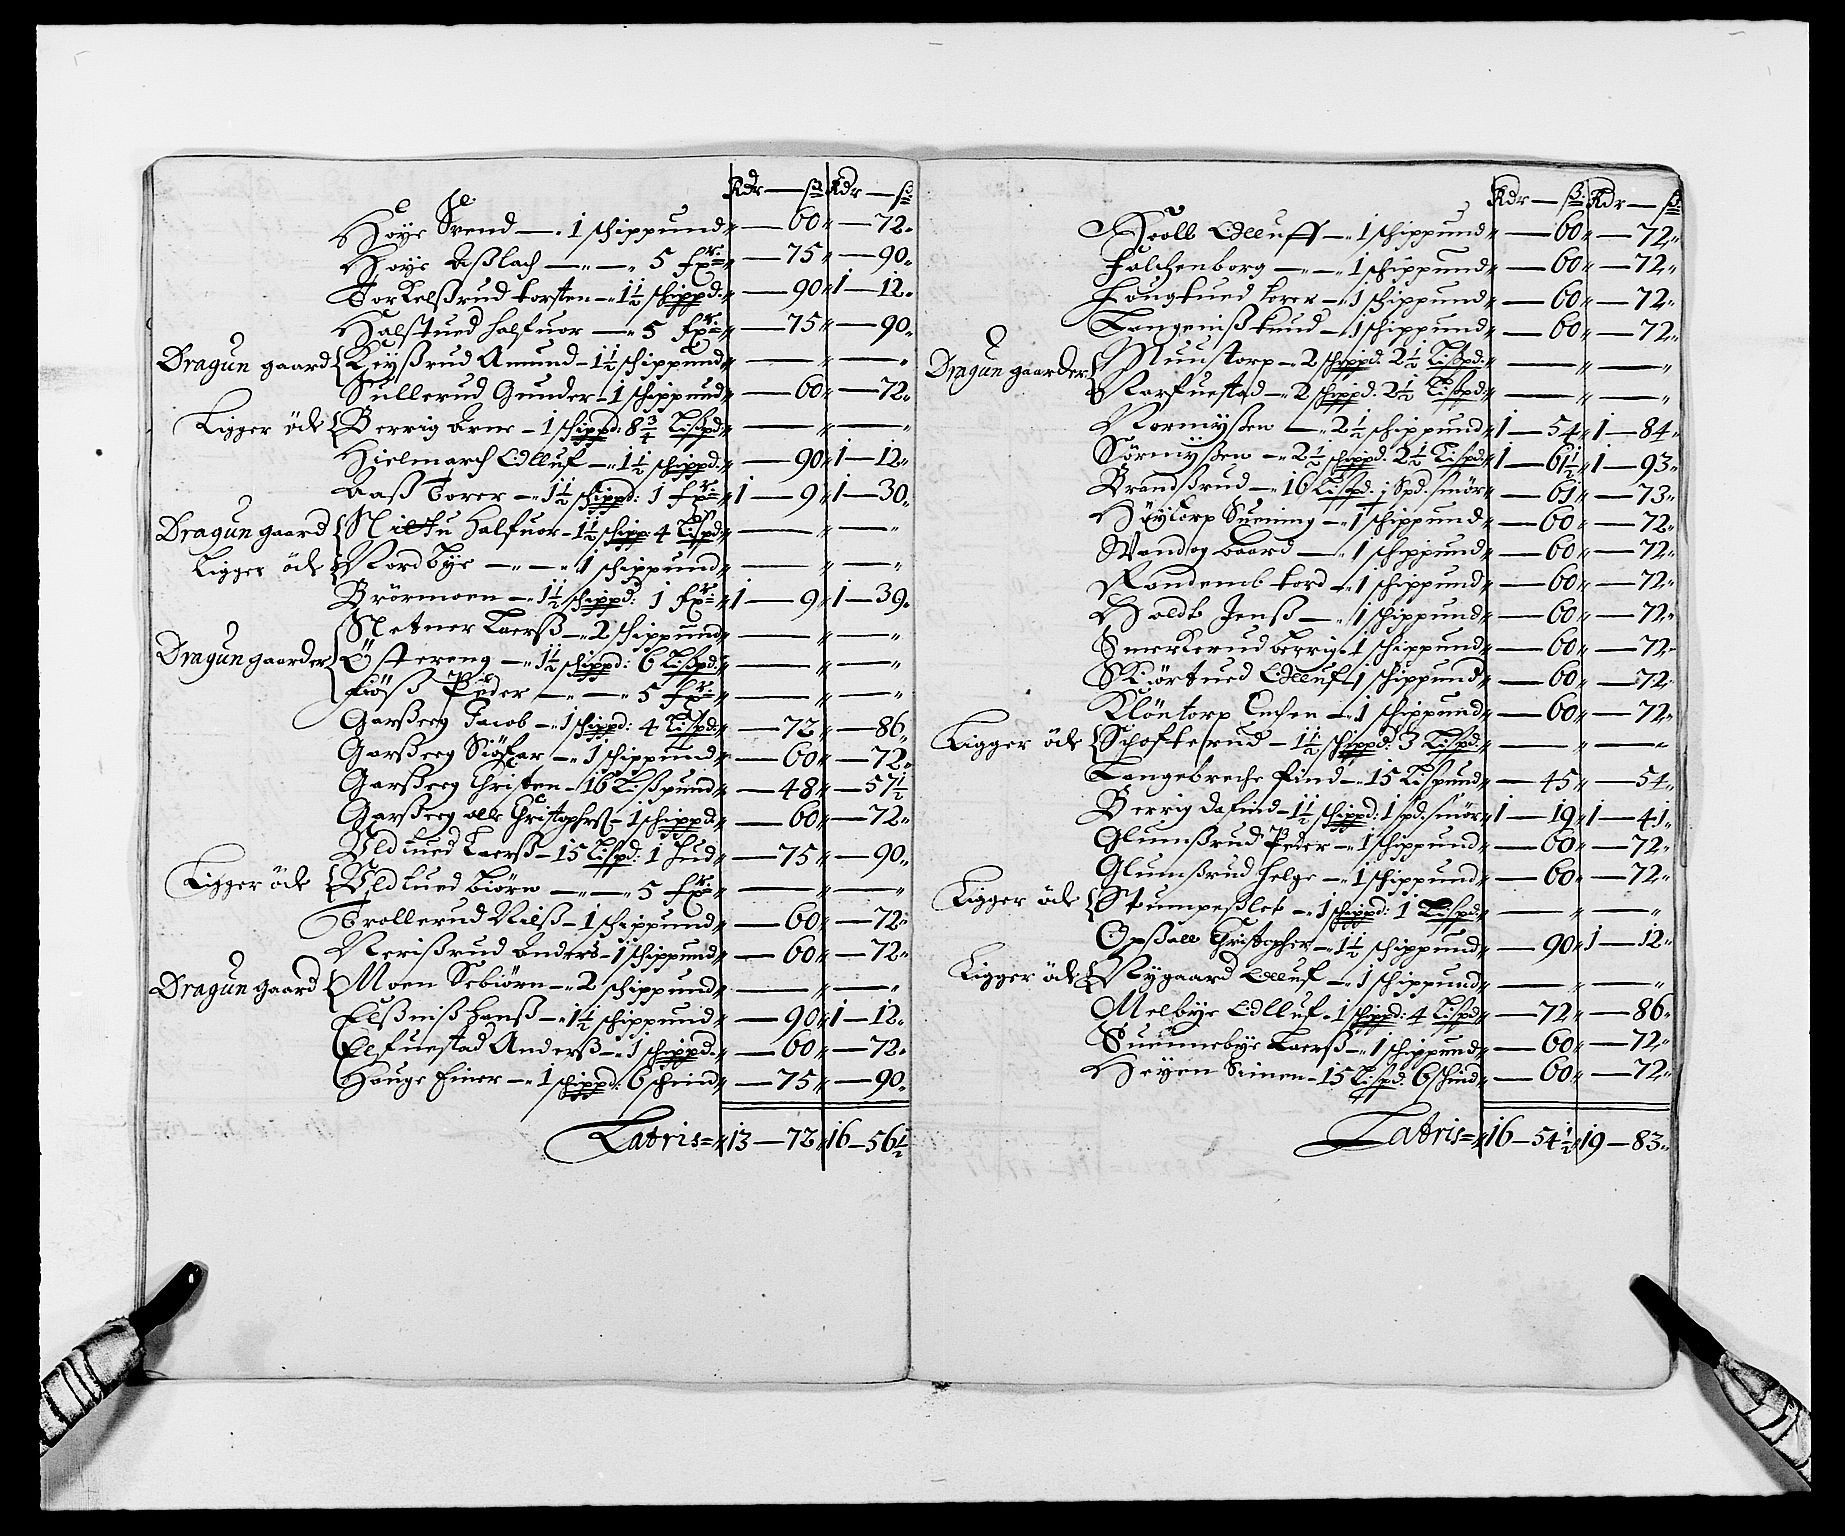 Rdr — ß Rdr — ß
Høye Svend — 1 schippund — 60 — 72
Høye Aßlach — — 5 fxr — 75 — 90
Torkelßrud torsten — 1½ schippd: — 90 1 — 12
Halstued halfuor — 5 fxr — 75 — 90
Dragun gaard { Keyßrud Amund — 1½ schippund — —
Sullerud Gunder — 1 schippund — 60 — 72
Ligger öde { Berrig Arne — 1 schippd: 8¾ Lißpd — —
Hielmarch Edlluf — 1½ schippd — 90 1 — 12
Aaß Torer — 1½ schippd: 1 fxr 1 — 9 1 — 30
Dragun gaard { halfuor — 1½ schipp: 4 Lispd — —
Ligger öde { Nordbye — — 1 schippund — —
Brörmoen — 1½ schippd: 1 fxr 1 — 9 1 — 39
Sletner Laerß — 2 schippund — —
Dragun gaarder { Östereng — 1½ schippd: 6 Lißpd: — —
Fiöß Peder — — 5 fxr — —
Garßeeg Jacob — 1 schippd: 4 Lispd: — 72 — 86
Garßeeg Siöfar — 1 schippund — 60 — 72
Garßeeg Christen — 16 Lißpund — 48 — 57½
Garßeeg olle Christopherß — 1 schippd — 60 — 72
Uldtued Laerß — 15 Lispd: 1 hud — 75 — 90
Ligger öde { Uldtued biörn — — 5 fxr — —
Trollerud Nilß — 1 schippund — 60 — 72
Nerißrud Anders — 1 schippund — 60 — 72
Dragun gaard { Moen Sebiörn — 2 schippund — —
Elßniß hanß — 1½ schippund — 90 1 — 12
Elsfuestad Anderß — 1 schippd — 60 — 72
Houge Einer — 1 schippd: 6 schind — 75 — 90
Latris = 13 — 72 16 — 56½
Rdr — ß Rdr — ß
Krolb Edlluff — 1 schippund — 60 — 72
Falchenborg — — 1 schippund — 60 — 72
Hougtued torer — 1 schippund — 60 — 72
Langeniß knud — 1 schippund — 60 — 72
Dragun gaarder { Muustorp — 2 schippd. 2½ Lißpd: — —
Narfuestad — 2 schippd. 2½ Lißpd — —
Normyßen — 2½ schippund 1 — 54 1 — 84
Sörmyßen — 2½ schippd. 2½ Lispd 1 — 61½ 1 — 93
Brandßrud — 16 Lispd: 1 Spd. smör — 61 — 73
Höytorp Suening — 1 schippund — 60 — 72
Wandog baard — 1 schippund — 60 — 72
Randemb tord — 1 schippund — 60 — 72
Holdt Jenß — 1 schippund — 60 — 72
Smerkerud berrig 1 schippund — 60 — 72
Skiörtued Edlluf 1 schippund — 60 — 72
Klöntorp Enchen — 1 schippund — 60 — 72
Ligger öde { Schofterud — 1½ schippd: 3 Lispd: — —
Langebreche find — 15 Lispund — 45 — 54
Berrig dafind — 1½ schippd: 1 spd. smör 1 — 19 1 — 41
Glumßrud Peder — 1 schippund — 60 — 72
Glumßrud helge — 1 schippund — 60 — 72
Ligger öde { Stumpeßlet — 1 schippd: 1 Lispd: — —
Opßall Christopher — 1½ schippund — 90 1 — 12
Ligger öde { Nygaard Edlluf — 1 schippund — —
Melbye Edlluf — 1 schippd: 4 Lispd — 72 — 86
Suennebye Laerß — 1 schippund — 60 — 72
Heyen Simen — 15 Lispd. 6 schind — 60 — 72
Latris = 16 — 54½ 19 — 83